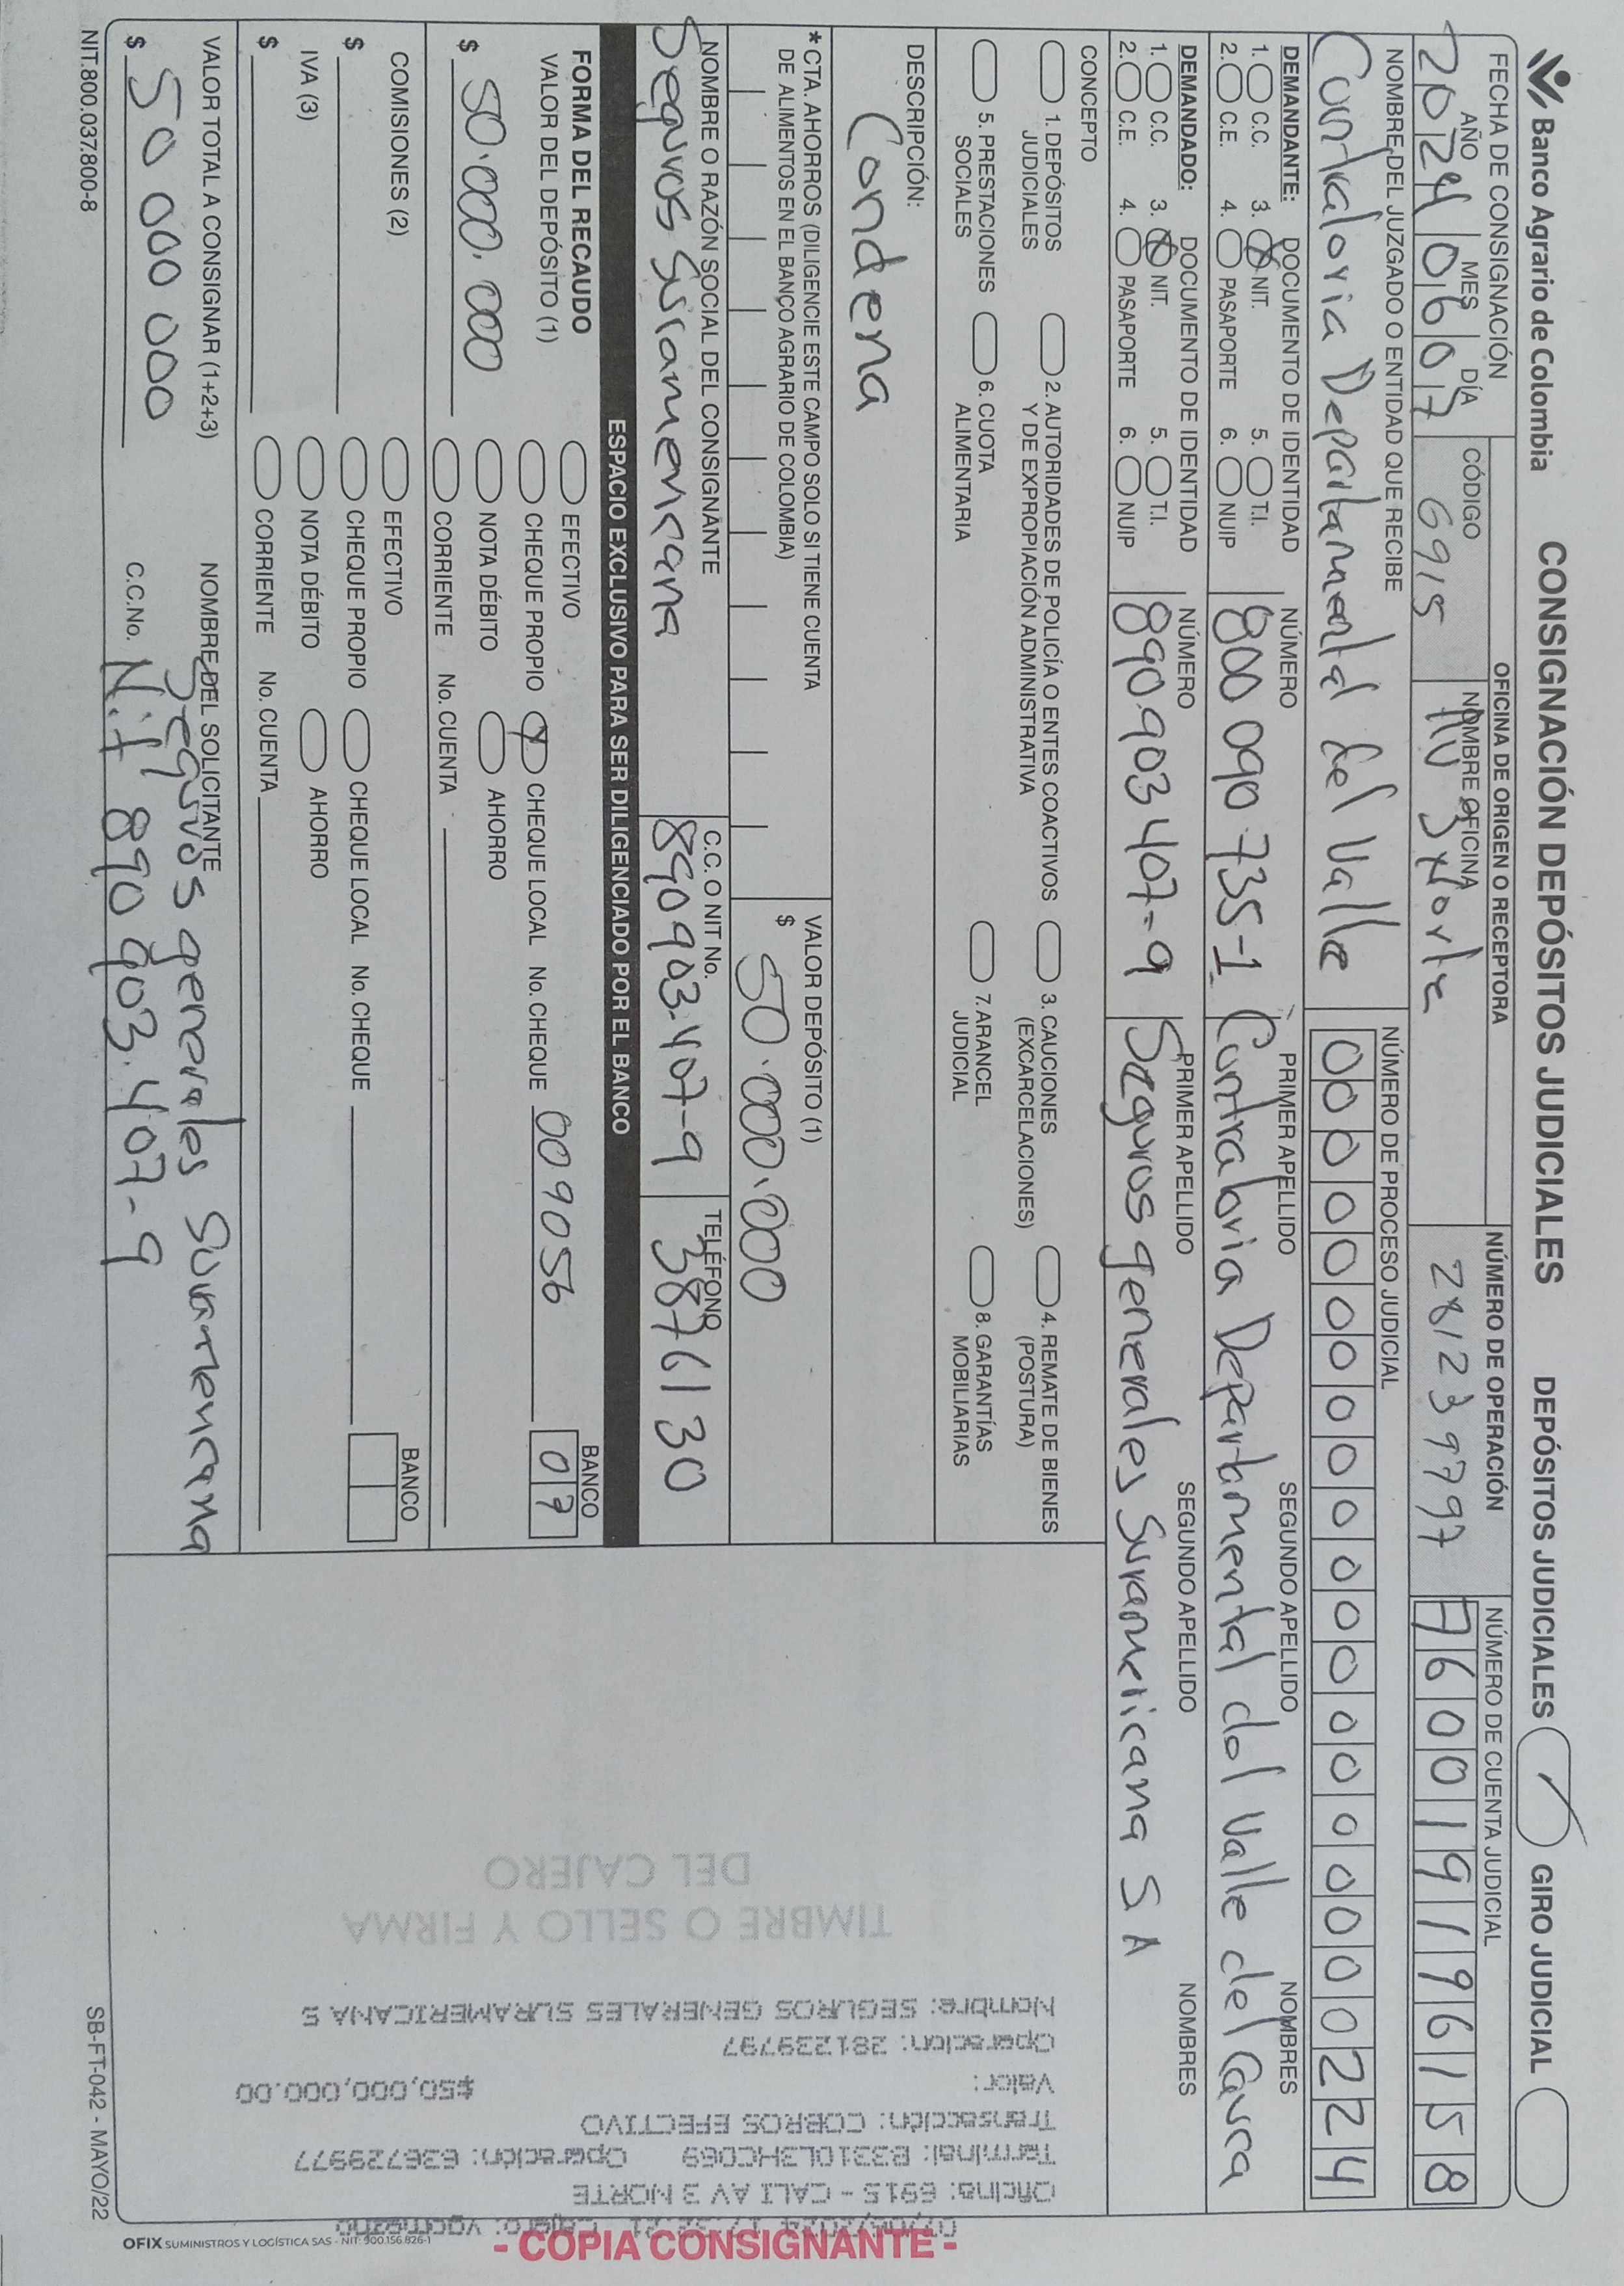 Banco Agrario de Colombia CONSIGNACIÓN DEPÓSITOS JUDICIALES DEPÓSITOS JUDICIALES GIRO JUDICIAL
FECHA DE CONSIGNACIÓN
AÑO MES DÍA
2024 06 07
OFICINA DE ORIGEN O RECEPTORA
CÓDIGO
6915
NOMBRE OFICINA
AV 3 Norte
NÚMERO DE OPERACIÓN
281239797
NÚMERO DE CUENTA JUDICIAL
760019196158
NOMBRE DEL JUZGADO O ENTIDAD QUE RECIBE
Contraloria Departamental del Valle
NÚMERO DE PROCESO JUDICIAL
00000000000000000000224
DEMANDANTE: DOCUMENTO DE IDENTIDAD
1. C.C. 3. X NIT. 5. T.I.
2. C.E. 4. PASAPORTE 6. NUIP
NÚMERO
800 090 735-1
PRIMER APELLIDO SEGUNDO APELLIDO NOMBRES
Contraloria Departamental del Valle del Cauca
DEMANDADO: DOCUMENTO DE IDENTIDAD
1. C.C. 3. X NIT. 5. T.I.
2. C.E. 4. PASAPORTE 6. NUIP
NÚMERO
890.903 407-9
PRIMER APELLIDO SEGUNDO APELLIDO NOMBRES
Seguros generales Suramericana S A
CONCEPTO
1. DEPÓSITOS JUDICIALES
2. AUTORIDADES DE POLICÍA O ENTES COACTIVOS Y DE EXPROPIACIÓN ADMINISTRATIVA
3. CAUCIONES (EXCARCELACIONES)
4. REMATE DE BIENES (POSTURA)
5. PRESTACIONES SOCIALES
6. CUOTA ALIMENTARIA
7. ARANCEL JUDICIAL
8. GARANTÍAS MOBILIARIAS
DESCRIPCIÓN:
Condena
*CTA. AHORROS (DILIGENCIE ESTE CAMPO SOLO SI TIENE CUENTA
DE ALIMENTOS EN EL BANCO AGRARIO DE COLOMBIA)
VALOR DEPÓSITO (1)
$ 50.000.000
NOMBRE O RAZÓN SOCIAL DEL CONSIGNANTE
Seguros Suramericana
C.C. O NIT No.
890903.407-9
TELÉFONO
3876130
ESPACIO EXCLUSIVO PARA SER DILIGENCIADO POR EL BANCO
FORMA DEL RECAUDO
VALOR DEL DEPÓSITO (1)
$ 50.000.000
EFECTIVO
CHEQUE PROPIO X CHEQUE LOCAL No. CHEQUE 009056
BANCO
07
NOTA DÉBITO AHORRO
CORRIENTE No. CUENTA
COMISIONES (2)
$
EFECTIVO
CHEQUE PROPIO CHEQUE LOCAL No. CHEQUE
BANCO
IVA (3)
$
NOTA DÉBITO AHORRO
CORRIENTE No. CUENTA
VALOR TOTAL A CONSIGNAR (1+2+3)
$ 50 000 000
NOMBRE DEL SOLICITANTE
Seguros generales Suramericana
C.C.No. Nit 890 903.407-9
NIT.800.037.800-8
SB-FT-042 - MAYO/22
TIMBRE O SELLO Y FIRMA
DEL CAJERO
07/06/2024 Cajero:
Oficina: 6915 - CALI AV 3 NORTE
Terminal: B3310L3HC069 Operación: 636729977
Transacción: COBROS EFECTIVO
Valor: $50,000,000.00
Operación: 281239797
Nombre: SEGUROS GENERALES SURAMERICANA S
OFIX SUMINISTROS Y LOGÍSTICA SAS - NIT: 900.156.826-1
- COPIA CONSIGNANTE -